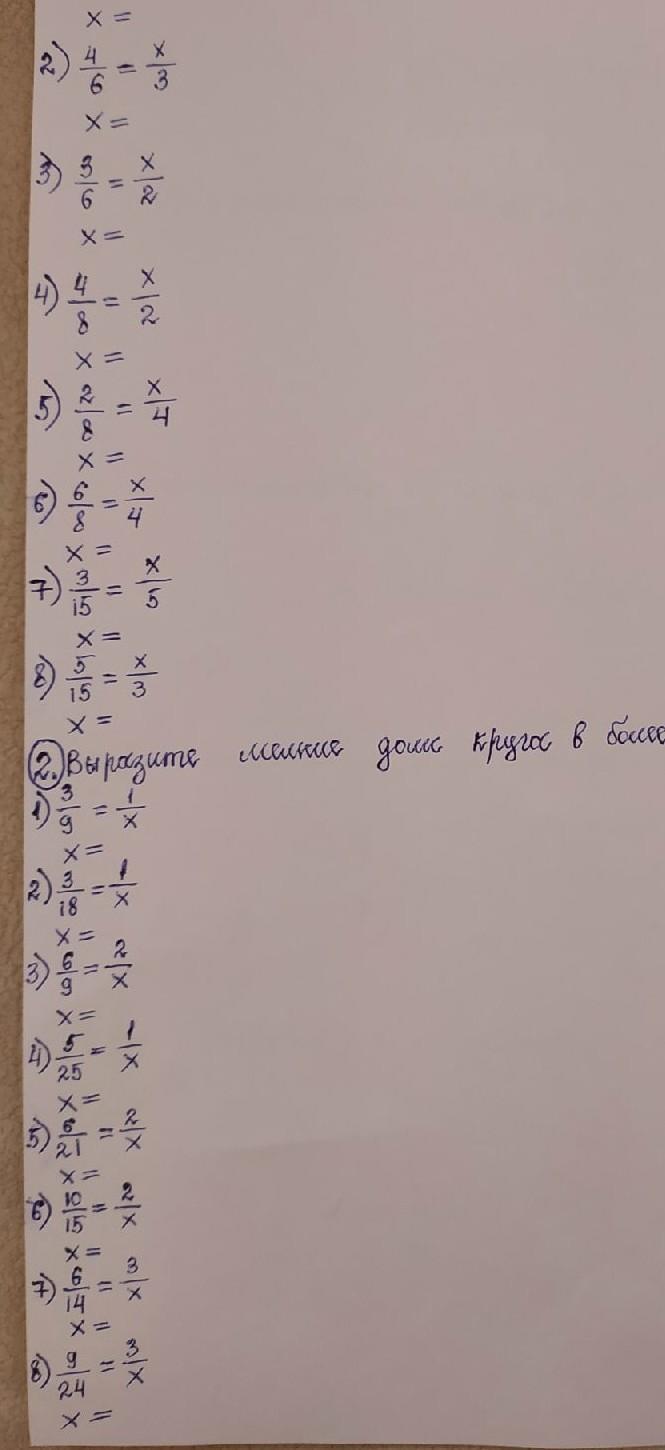 x =
2) 4/6 = x/3
x =
3) 3/6 = x/2
x =
4) 4/8 = x/2
x =
5) 2/8 = x/4
x =
6) 6/8 = x/4
x =
7) 3/15 = x/5
x =
8) 5/15 = x/3
x =
2. Выразите мелкие доли круга в более
1) 3/9 = 1/x
x =
2) 3/18 = 1/x
x =
3) 6/9 = 2/x
x =
4) 5/25 = 1/x
x =
5) 6/21 = 2/x
x =
6) 10/15 = 2/x
x =
7) 6/14 = 3/x
x =
8) 9/24 = 3/x
x =